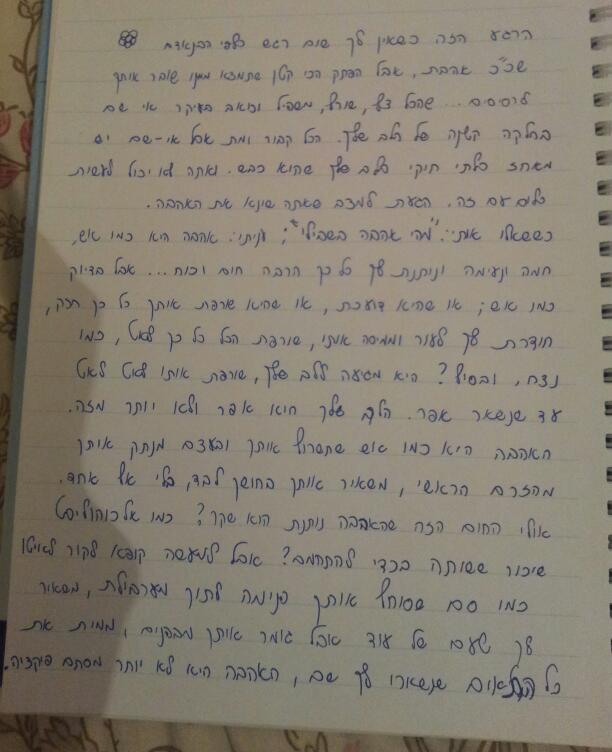 הרגע הזה כשאין לך שום רגש כלפי הבנאדם
שכ"כ אהבת, אבל הפתק הכי קטן שתמצא ממנו שובר אותך
לרסיסים... שהכל צף, שורף, משפיל וכואב בעיקר אי שם
בחלקה קטנה של הלב שלך. הכל קבור ומת אבל אי-שם יש
מאחז בלתי חוקי בלב שלך שהוא כבש. ואתה לא יכול לעשות
כלום עם זה. הגעת למצב שאתה שונא את האהבה.
כששאלו אותי: "מהי אהבה בשבילי"; עניתי: אהבה היא כמו אש,
חמה ונעימה ונותנת לך כל כך הרבה חום וכוח... אבל בדיוק
כמו אש; או שהיא דועכת, או שהיא שורפת אותך כל כך חזק,
חודרת לך לעור וממיסה אותו, שורפת הכל כל כך לאט, כמו
נצח, ובסוף? היא מגיעה ללב שלך, שורפת אותו לאט לאט
עד שנשאר אפר. הלב שלך הוא אפר ולא יותר מזה.
האהבה היא כמו אש שתשרוף אותך ובעצם תנתק אותך
מהזרם הראשי, תשאיר אותך בחושך לבד, בלי אף אחד.
אולי החום הזה שהאהבה נותנת הוא שקר? כמו אלכוהוליסט
שיכור ששותה בכדי להתחמם? אבל למעשה קופא לקור לאיטו
כמו סם שסוחף אותך פנימה לתוך מערבולת, משאיר
לך טעם של עוד אבל גומר אותך מבפנים, ממית את
כל התאים שנשארו לך שם, האהבה היא לא יותר מסתם פיקציה.